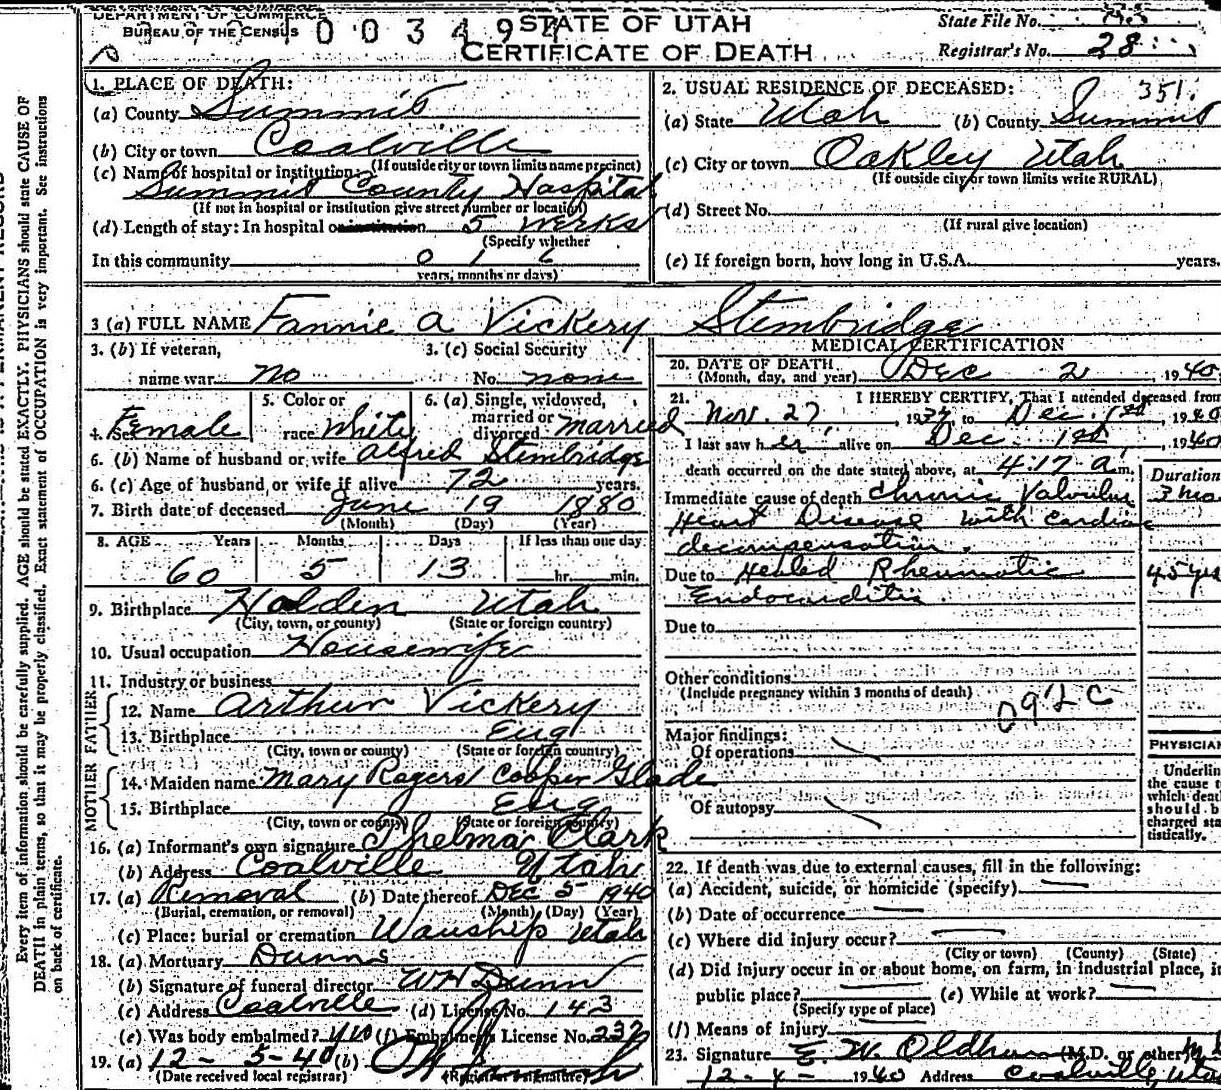 DEPARTMENT OF COMMERCE
BUREAU OF THE CENSUS
STATE OF UTAH
CERTIFICATE OF DEATH
State File No.
Registrar's No. 28
1. PLACE OF DEATH:
(a) County Summit
(b) City or town Coalville
(If outside city or town limits name precinct)
(c) Name of hospital or institution:
Summit County Hospital
(If not in hospital or institution give street number or location)
(d) Length of stay: In hospital or institution 5 weeks
(Specify whether
In this community 0 1 6
years, months or days)
2. USUAL RESIDENCE OF DECEASED: 351.
(a) State Utah (b) County Summit
(c) City or town Oakley Utah
(If outside city or town limits write RURAL)
(d) Street No.
(If rural give location)
(e) If foreign born, how long in U.S.A. years.
3 (a) FULL NAME Fannie A Vickery Stembridge
3. (b) If veteran,
name war no
3. (c) Social Security
No. none
4. Sex Female
5. Color or
race White
6. (a) Single, widowed,
married or
divorced married
6. (b) Name of husband or wife Alfred Stembridge
6. (c) Age of husband or wife if alive 72 years.
7. Birth date of deceased June 19 1880
(Month) (Day) (Year)
8. AGE Years Months Days If less than one day
60 5 13 hr. min.
9. Birthplace Holden Utah
(City, town, or county) (State or foreign country)
10. Usual occupation Housewife
11. Industry or business
FATHER
12. Name Arthur Vickery
13. Birthplace Eng
(City, town or county) (State or foreign country)
MOTHER
14. Maiden name Mary Rogers Cooper Glade
15. Birthplace Eng
(City, town or county) (State or foreign country)
16. (a) Informant's own signature Thelma Clark
(b) Address Coalville Utah
17. (a) Removal (b) Date thereof Dec 5 1940
(Burial, cremation, or removal) (Month) (Day) (Year)
(c) Place: burial or cremation Wanship Utah
18. (a) Mortuary Dunns
(b) Signature of funeral director W H Dunn
(c) Address Coalville (d) License No. 143
(e) Was body embalmed? yes (f) Embalmer's License No. 232
19. (a) 12-5-40 (b)
(Date received local registrar) (Registrar's signature)
MEDICAL CERTIFICATION
20. DATE OF DEATH
(Month, day, and year) Dec 2, 1940
21. I HEREBY CERTIFY, That I attended deceased from
Nov. 27, 19 to Dec. 1st, 1940
I last saw her alive on Dec. 1st, 1940
death occurred on the date stated above, at 4:17 a m.
Duration
Immediate cause of death Chronic Valvular 3 mo
Heart Disease with cardiac
decompensation.
Due to Healed Rheumatic 45 yrs
Endocarditis.
Due to
Other conditions
(Include pregnancy within 3 months of death)
092C
Major findings:
Of operations
Of autopsy
PHYSICIAN
Underline
the cause t
which deat
should b
charged sta
tistically.
22. If death was due to external causes, fill in the following:
(a) Accident, suicide, or homicide (specify)
(b) Date of occurrence
(c) Where did injury occur?
(City or town) (County) (State)
(d) Did injury occur in or about home, on farm, in industrial place, in
public place? (e) While at work?
(Specify type of place)
(f) Means of injury
23. Signature E. W. Oldham (M.D. or other)
12-4-1940 Address Coalville Utah
Every item of information should be carefully supplied. AGE should be stated EXACTLY. PHYSICIANS should state CAUSE OF
DEATH in plain terms, so that it may be properly classified. Exact statement of OCCUPATION is very important. See instructions
on back of certificate.